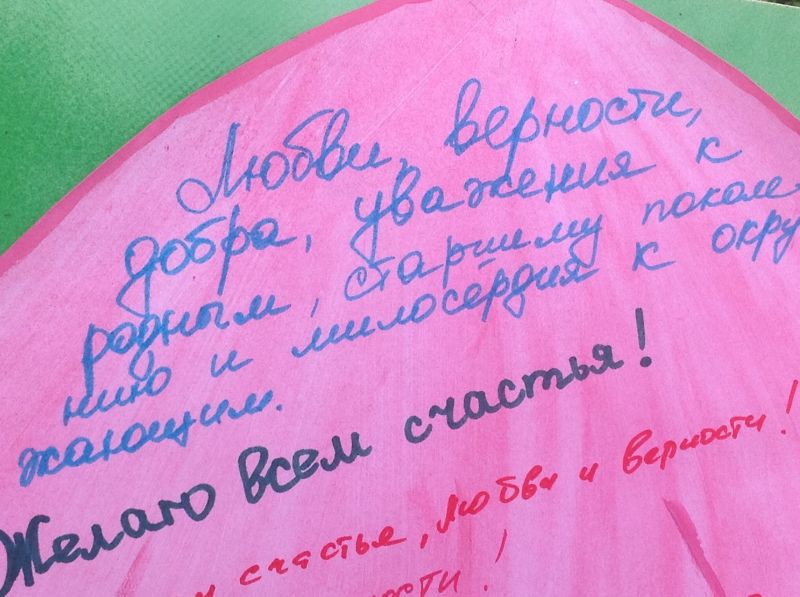 Любви, верности,
добра, уважения к
родным, старшему поколе-
нию и милосердия к окру
жающим.
Желаю всем счастья!
счастья, любви и верности!